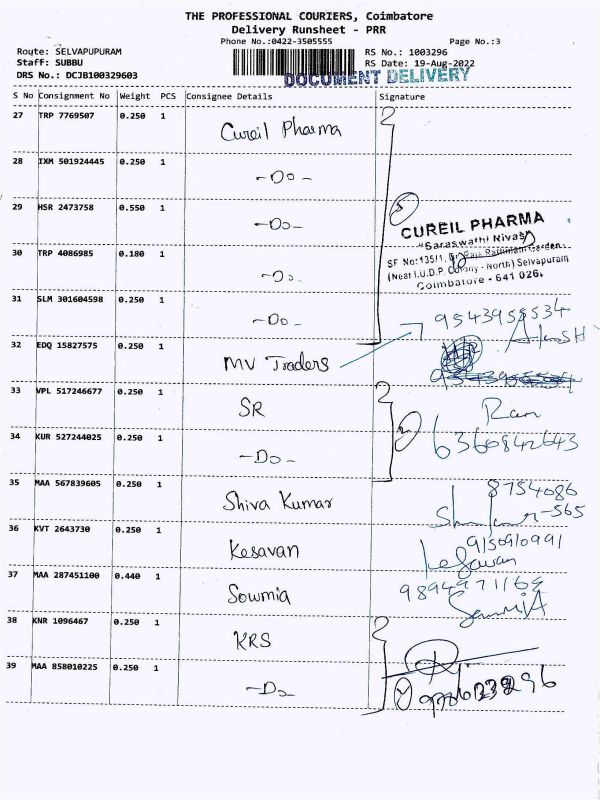 THE PROFESSIONAL COURIERS, Coimbatore
Delivery Runsheet - PRR
Phone No.:0422-3505555 Page No.:3
Route: SELVAPUPURAM RS No.: 1003296
Staff: SUBBU RS Date: 19-Aug-2022
DRS No.: DCJB100329603
DOCUMENT DELIVERY
S No Consignment No Weight PCS Consignee Details Signature
27 TRP 7769507 0.250 1 Cureil Pharma
28 IXM 501924445 0.250 1 -Do-
29 HSR 2473758 0.550 1 -Do-
5
CUREIL PHARMA
"Saraswathi Nivas"
SF No:135/1, Garden,
(Near T.U.D.P. Colony - North) Selvapuram
Coimbatore - 641 026.
30 TRP 4086985 0.180 1 -Do-
31 SLM 301604598 0.250 1 -Do-
9543955534
32 EDQ 15827575 0.250 1 MV Traders
33 VPL 517246677 0.250 1 SR Ram
34 KUR 527244025 0.250 1 -Do- 2 6360842643
35 MAA 567839605 0.250 1 Shiva Kumar 8754086
-565
36 KVT 2643730 0.250 1 Kesavan 9150910991
Kesavan
37 MAA 287451100 0.440 1 Sowmia 9894971164
SowmiA
38 KNR 1096467 0.250 1 KRS
39 MAA 858010225 0.250 1 -Do-